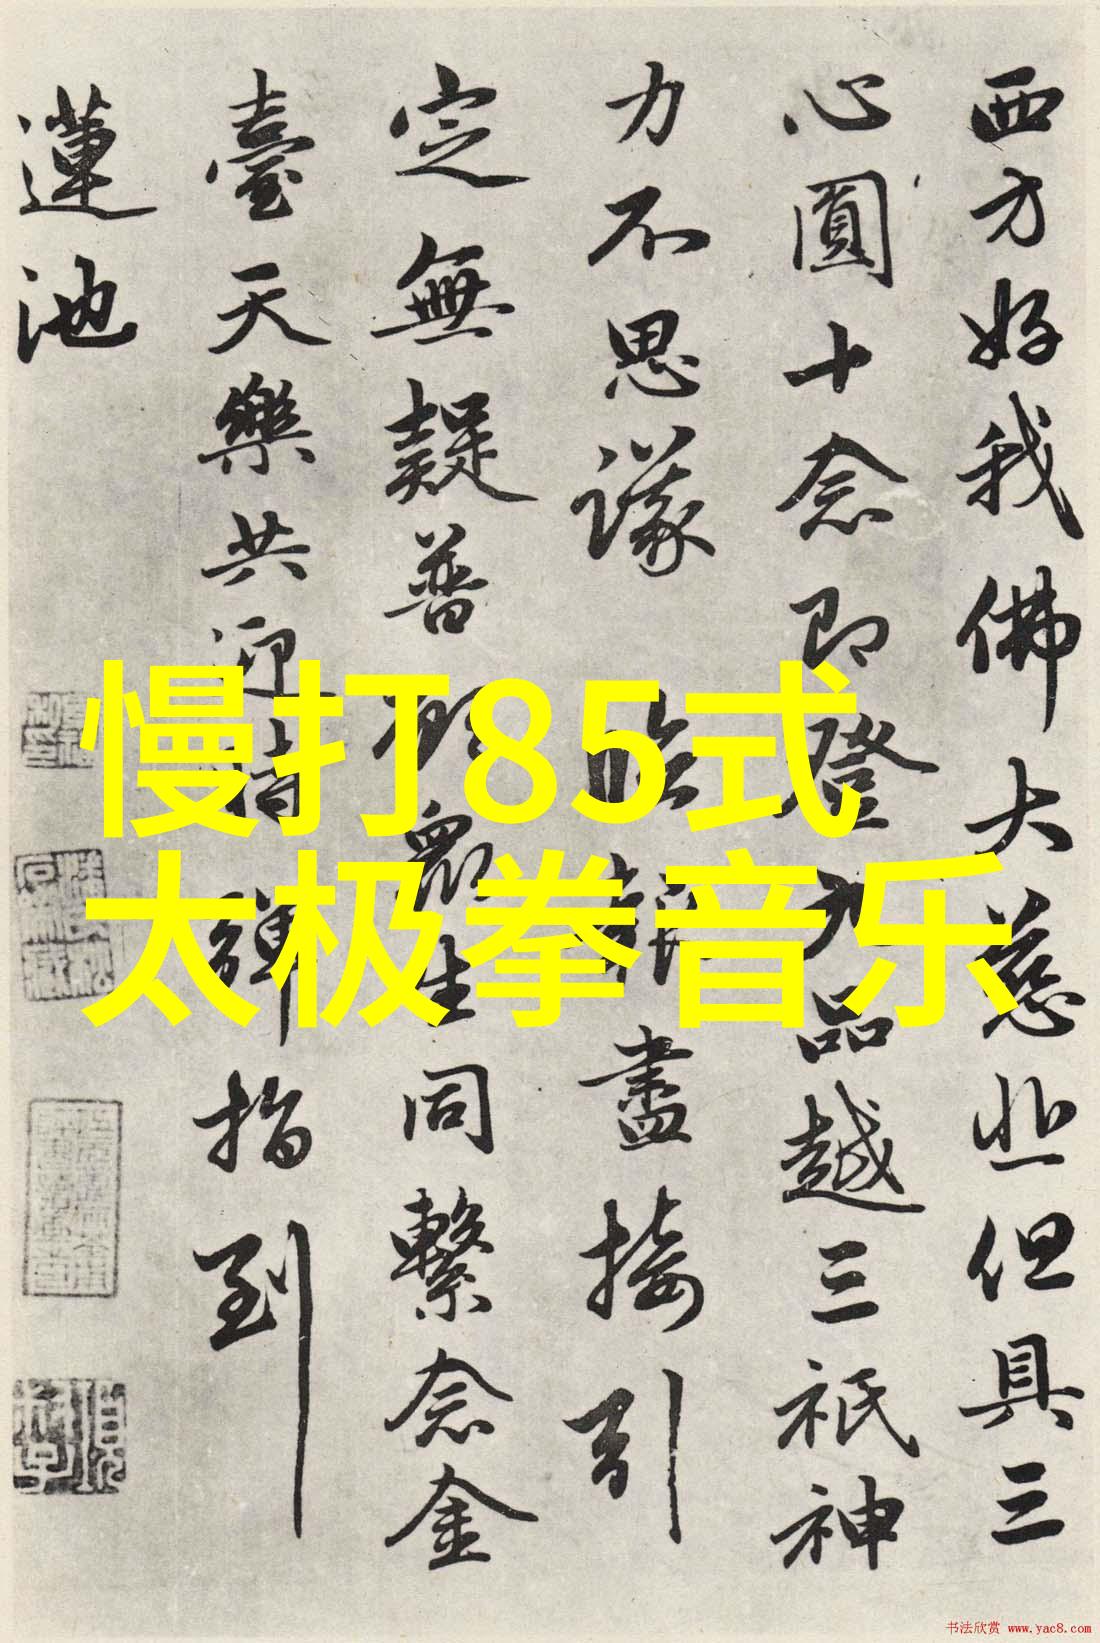 西方好我佛大慈悲但具三
心圓十念即登九品越三祇神
力不思議臨報盡接引
定無疑普願眾生同繫念金
臺天樂共迎持彈指到
蓮池
慢打85式
太极拳音乐
书法欣赏 www.yac8.com